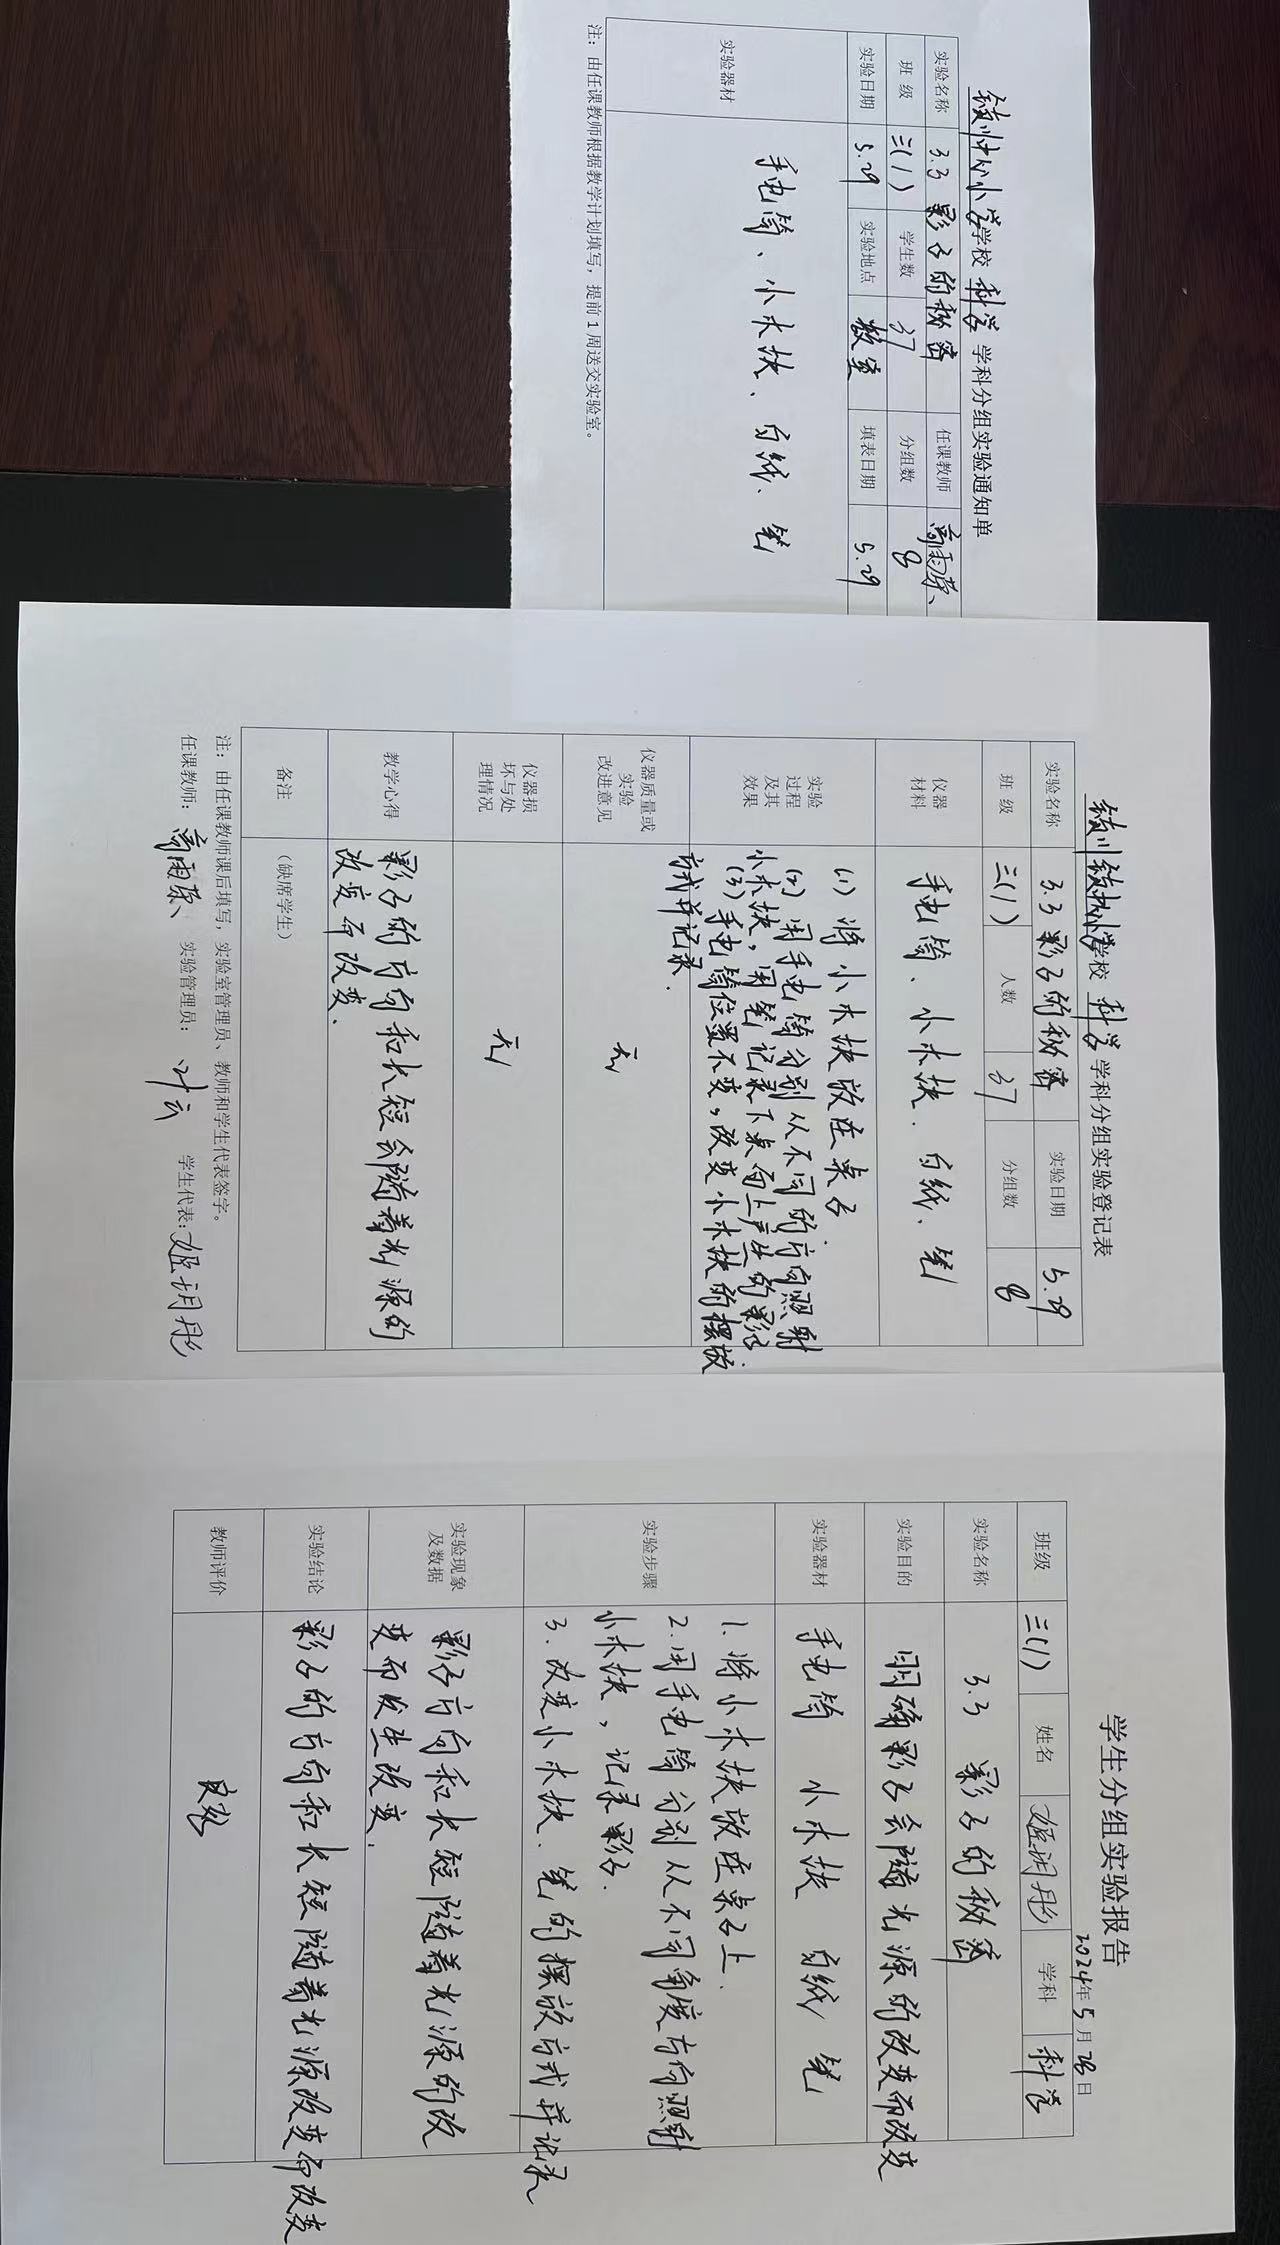 镇川中心小学学校 科学 学科分组实验通知单
实验名称 3.3 影子的秘密 任课教师 高雨荣
班 级 三(1) 学生数 37 分组数 8
实验日期 5.29 实验地点 教室 填表日期 5.29
实验器材 手电筒、小木块、白纸、笔
注：由任课教师根据教学计划填写，提前1周送交实验室。
学校 科学 学科分组实验登记表
实验名称 3.3 影子的秘密 实验日期 5.29
班 级 三(1) 人数 37 分组数 8
仪器
材料
手电筒、小木块、白纸、笔
实验
过程
及其
效果
(1) 将小木块放在桌子.
(2) 用手电筒分别从不同的方向照射
小木块，用笔记录下桌面上产生的影子.
(3) 手电筒位置不变，改变小木块的摆放
方式并记录.
仪器质量或
实验
改进意见
无
仪器损
坏与处
理情况
无
教学心得
影子的方向和长短会随着光源的
改变而改变.
备注 (缺席学生)
注：由任课教师课后填写，实验室管理员、教师和学生代表签字。
任课教师： 高雨荣 实验管理员： 叶云 学生代表: 姬玥彤
学生分组实验报告
2024年5月28日
班级 三(1) 姓名 姬玥彤 学科 科学
实验名称 3.3 影子的秘密
实验目的 明确影子会随光源的改变而改变
实验器材 手电筒 小木块 白纸 笔
实验步骤
1. 将小木块放在桌子上.
2. 用手电筒分别从不同角度方向照射
小木块，记录影子.
3. 改变小木块、笔的摆放方式并记录
实验现象
及数据
影子方向和长短随着光源的改
变而发生改变.
实验结论 影子的方向和长短随着光源改变而改变
教师评价